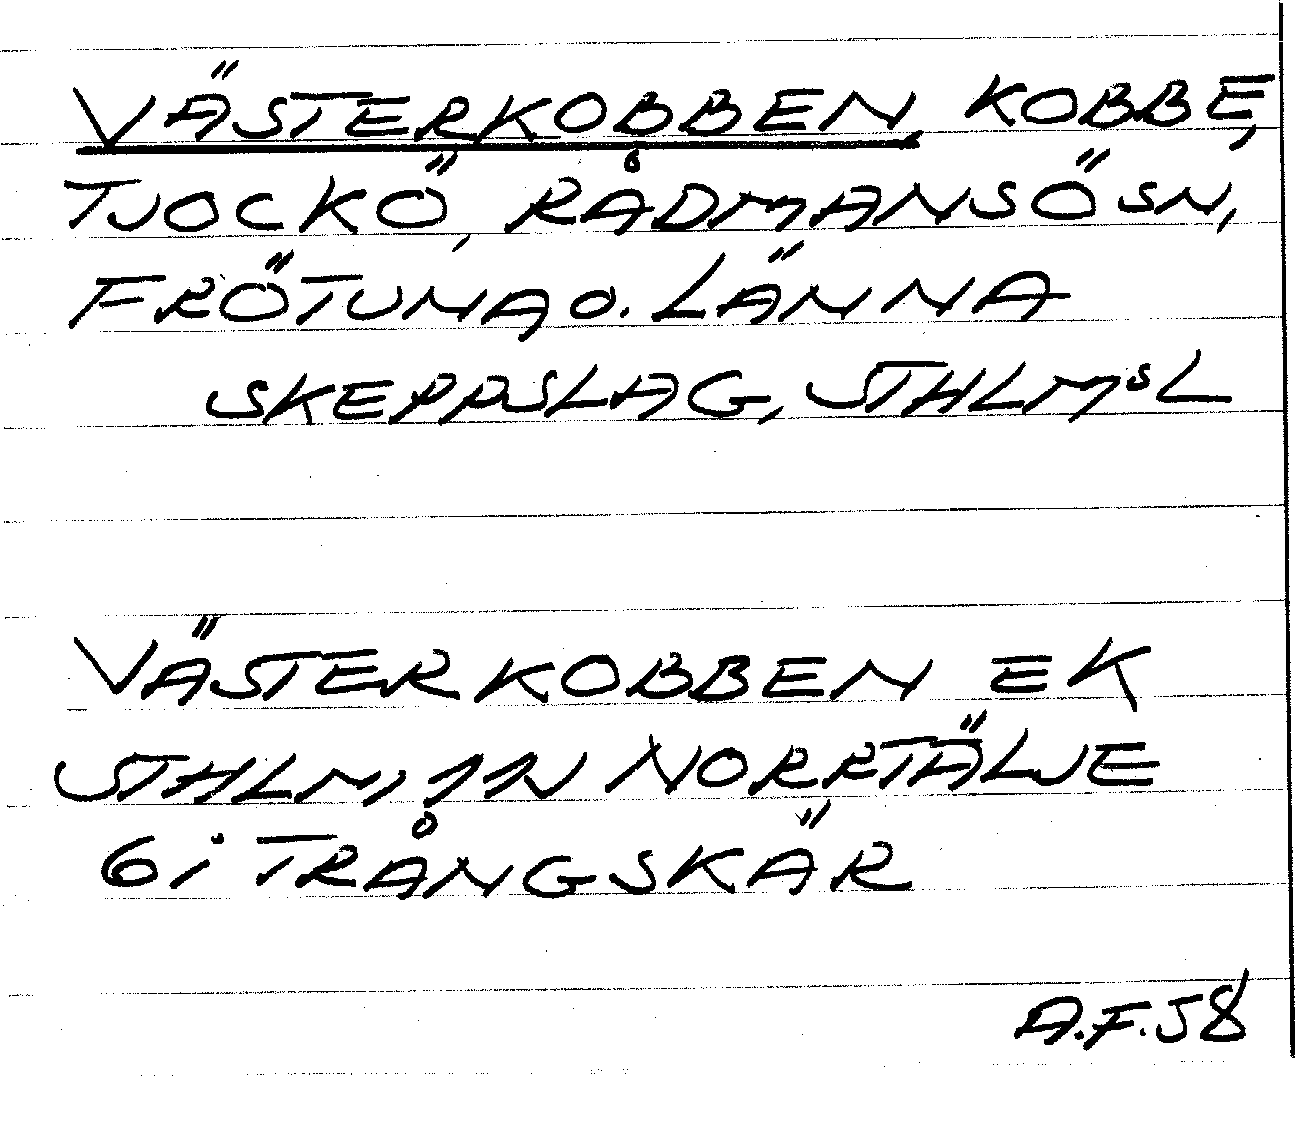 VÄSTERKOBBEN, KOBBE,
TJOCKÖ, RÅDMANSÖSN,
FRÖTUNA O. LÄNNA
SKEPPSLAG, STHLMSL
VÄSTERKOBBEN EK
STHLM, 11N NORRTÄLJE
6i TRÅNGSKÄR
A.F.58